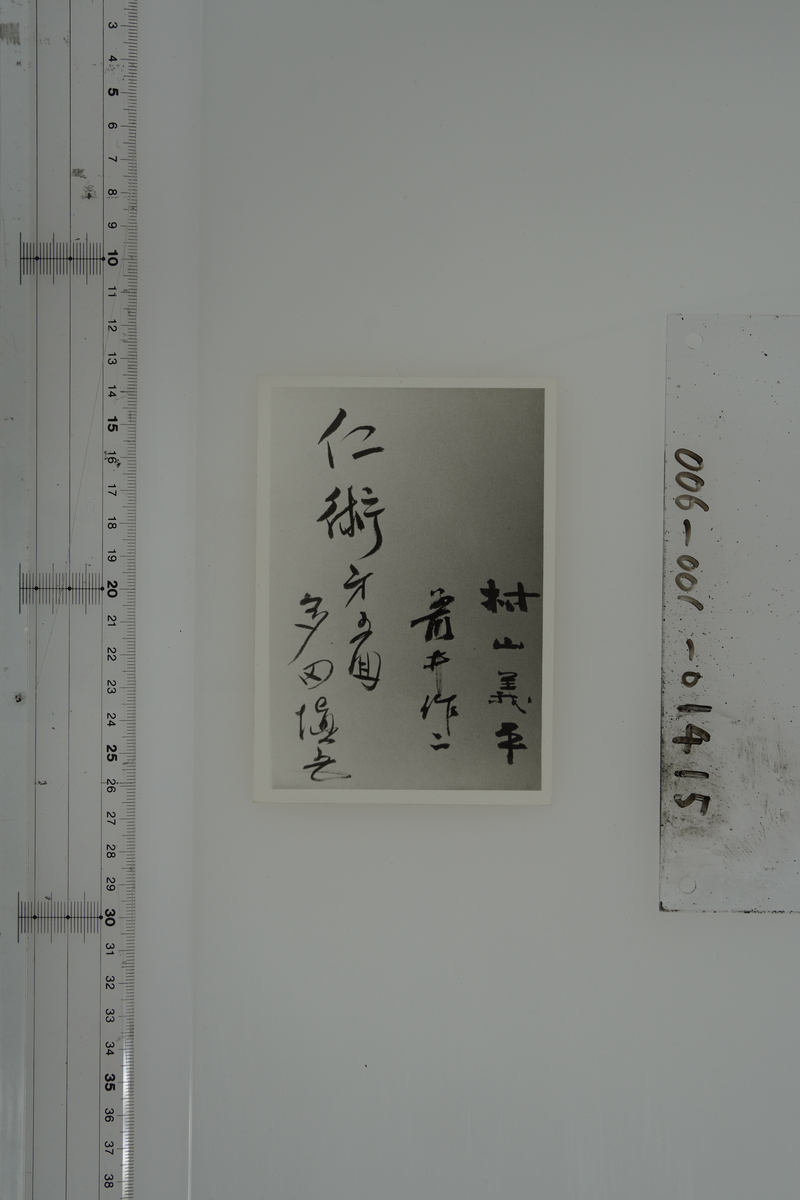 村山義平
蒼井作二
仁術
多田
006-001-01415
3 4 5 6 7 8 9 10 11 12 13 14 15 16 17 18 19 20 21 22 23 24 25 26 27 28 29 30 31 32 33 34 35 36 37 38